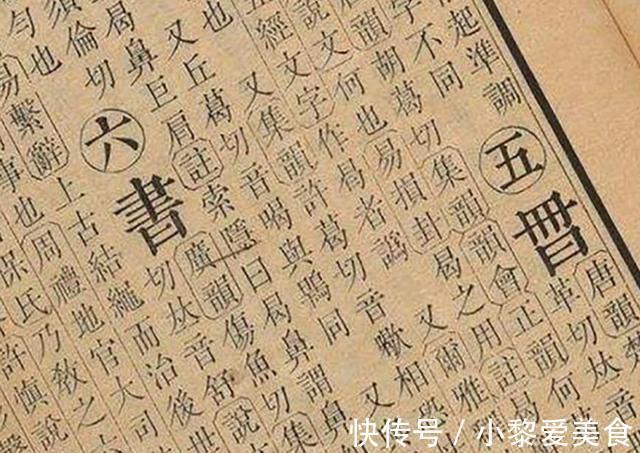 起準調
五
唐韻
革切𡘋
字不同
韻胡葛切集韻韻會正韻何
說文何也易損卦曷之用註曷
五經文字作曷者譌 又爾雅
又集韻許葛切音歇 又相
又丘葛切音喝與鶡同 又
曷鼻巨肩註索隱曰曷鼻謂鼻
須倫切
勻也
六
書
廣韻傷魚切集
切𡘋音舒說
易繫辭上古結繩而治後世
事也周禮地官大司
保氏乃敎之
許愼說
快传号 / 小黎爱美食